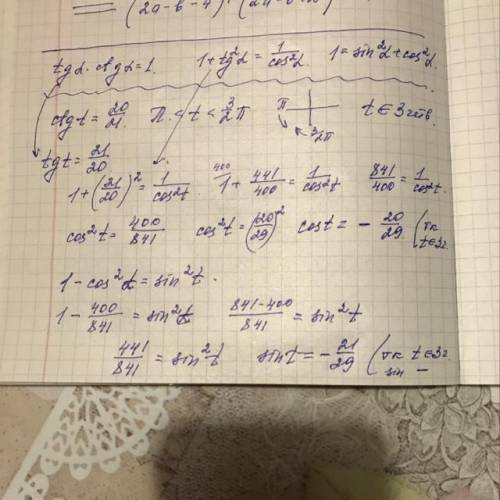 (2a-b-4)·(2a-b
tgα·ctgα=1. 1+tg²α = 1/cos²α 1=sin²α+cos²α.
ctgt = 20/21 π<t<3/2π π 3/2π t∈3четв.
tgt = 21/20
1+(21/20)² = 1/cos²t 400/1+441/400 = 1/cos²t 841/400 = 1/cos²t.
cos²t = 400/841 cos²t=(20/29)² cost = -20/29 (тк t∈3г.
1-cos²t = sin²t.
1-400/841 = sin²t 841-400/841 = sin²t
441/841 = sin²t sint = -21/29 (тк t∈3г. sin -